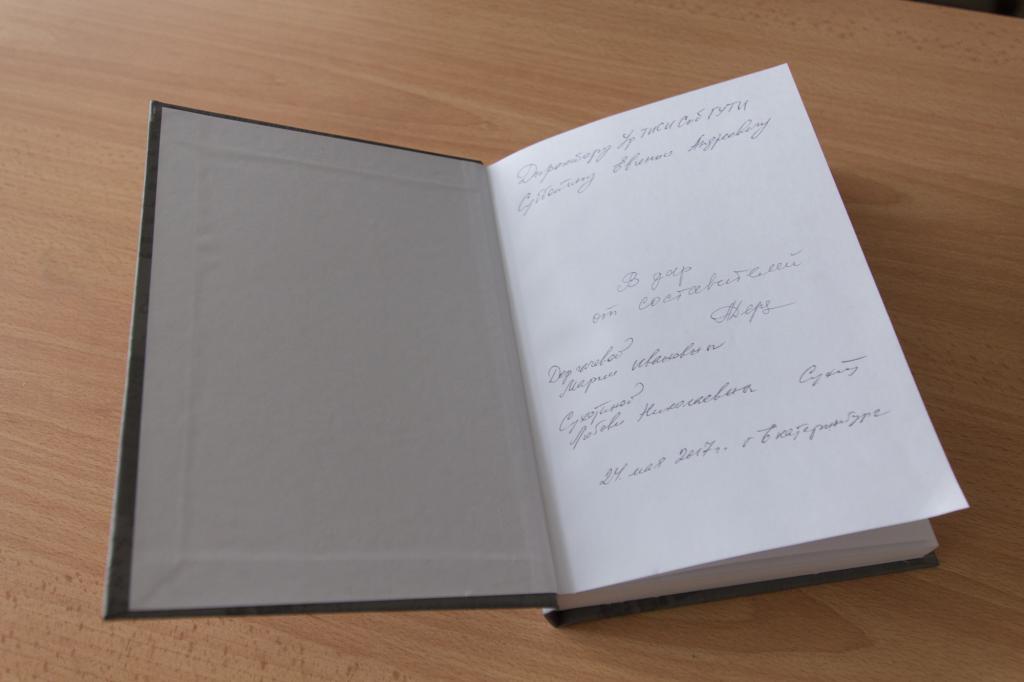 Директору УрТИСИ СибГУТИ
Субботину Евгению Андреевичу
В дар
от составителей
Дергачевой
Марии Ивановны
Сухотиной
Любови Николаевны
24 мая 2017г. г Екатеринбург